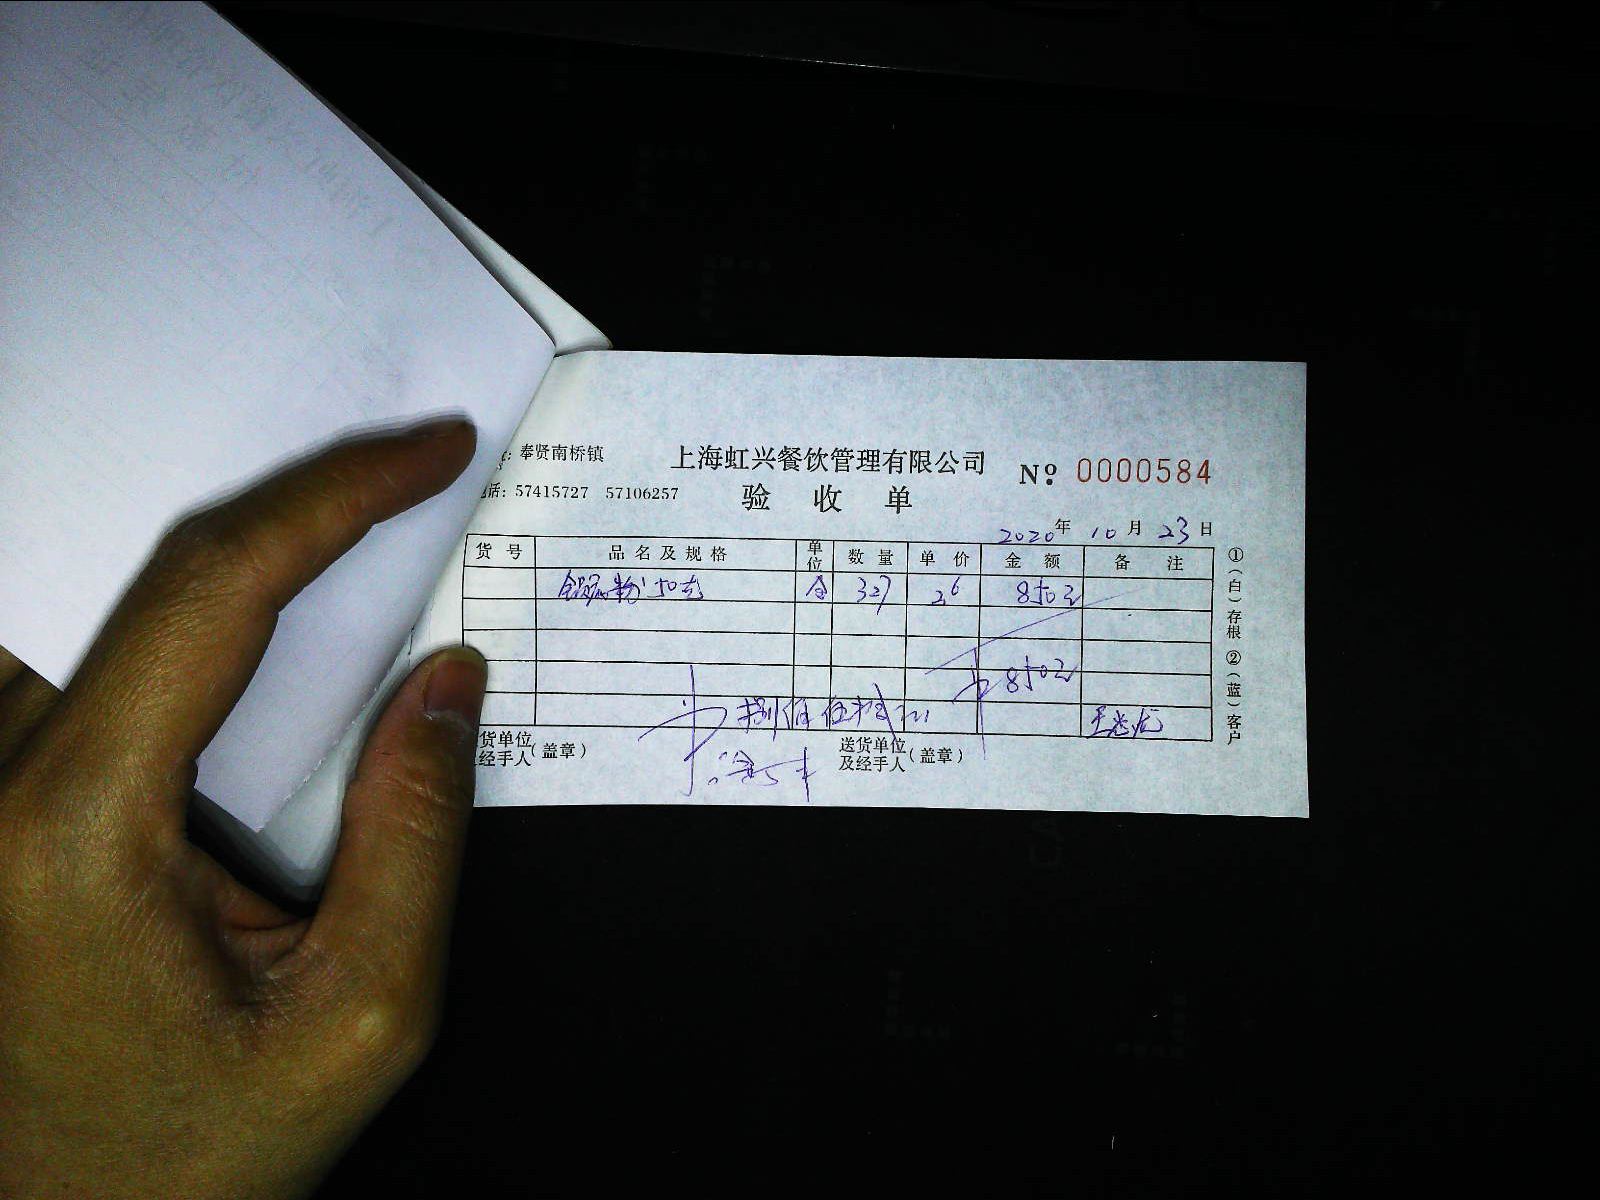 奉贤南桥镇
上海虹兴餐饮管理有限公司 No: 0000584
话: 57415727 57106257
验收单
2020年 10月 23日
货号 品名及规格 单位 数量 单价 金额 备注
粉 327 26 850元
850元
捌佰伍拾元
货单位及经手人(盖章)
送货单位及经手人(盖章)
①(白)存根 ②(蓝)客户